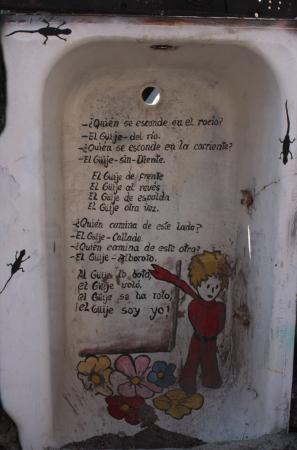 -¿Quién se esconde en el rocío?
-El Güije- del río.
-¿Quién se esconde en la corriente?
-El Güije-sin-Diente.
El Güije de frente
El Güije al revés
El Güije de espalda
El Güije otra vez.
-¿Quién camina de este lado?
-El Güije-Callado.
-¿Quién camina de este otro?
-El Güije-Alboroto.
Al Güije lo boto,
¡el Güije voló,
el Güije se ha roto,
¡el Güije soy yo!